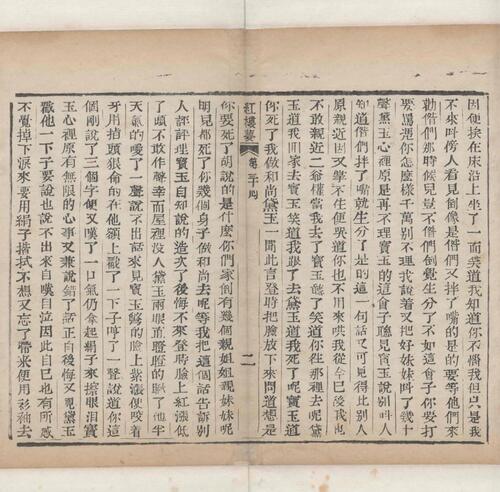 因便挨在床沿上坐了一面笑道我知道你不惱我但只是我
不來呌傍人看見倒像是偺們又拌了嘴的是的要等他們來
勸偺們那時候兒豈不偺們倒覺生分了不如這會子你要打
要罵憑你怎麼樣千萬別不理我說着又把好妹妹呌了幾十
聲黛玉心裡原是再不理寶玉的這會子聽見寶玉說别呌人
知道偺們拌了嘴就生分了是的這一句話又可見得比别人
原親近因又掌不住便哭道你也不用來哄我從今已後我也
不敢親近二爺權當我去了寶玉聽了笑道你往那裡去呢黛
玉道我回家去寶玉笑道我跟了去黛玉道我死了呢寶玉道
你死了我做和尚黛玉一聞此言登時把臉放下來問道想是
紅樓夢 第三十回 二
你要死了胡說的是什麼你們家倒有幾個親姐姐親妹妹呢
明兒都死了你幾個身子做和尚去呢等我把這個話告訴别
人評評理寶玉自知說的造次了後悔不來登時臉上紅漲低
了頭不敢作聲幸而屋裡没人黛玉兩眼直瞪瞪的瞅了他半
天氣的嗳了一聲說不出話來見寶玉彆的臉上紫漲便咬着
牙用指頭狠命的在他額上戳了一下子哼了一聲說道你這
個剛說了三個字便又嘆了一口氣仍拿起絹子來擦眼淚寶
玉心裡原有無限的心事又兼說錯了話正自後悔又見黛玉
戳他一下子要說也說不出來自嘆自泣因此自己也有所感
不覺掉下淚來要用絹子揩拭不想又忘了帶來便用衫袖去